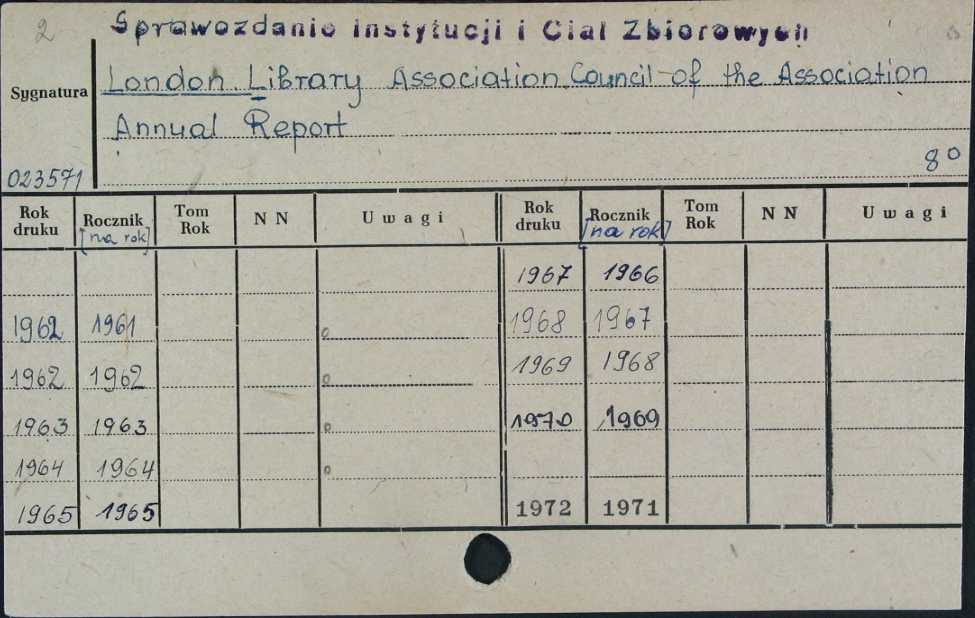 2
Sprawozdanie Instytucji i Ciał Zbiorowych
Sygnatura
London. Library Association. Council of the Association
Annual Report
8°
023571
Rok druku Rocznik [na rok] Tom Rok N N Uwagi Rok druku Rocznik [na rok] Tom Rok N N Uwagi
1967 1966
1962 1961 1968 1967
1962 1962 1969 1968
1963 1963 1970 1969
1964 1964
1965 1965 1972 1971